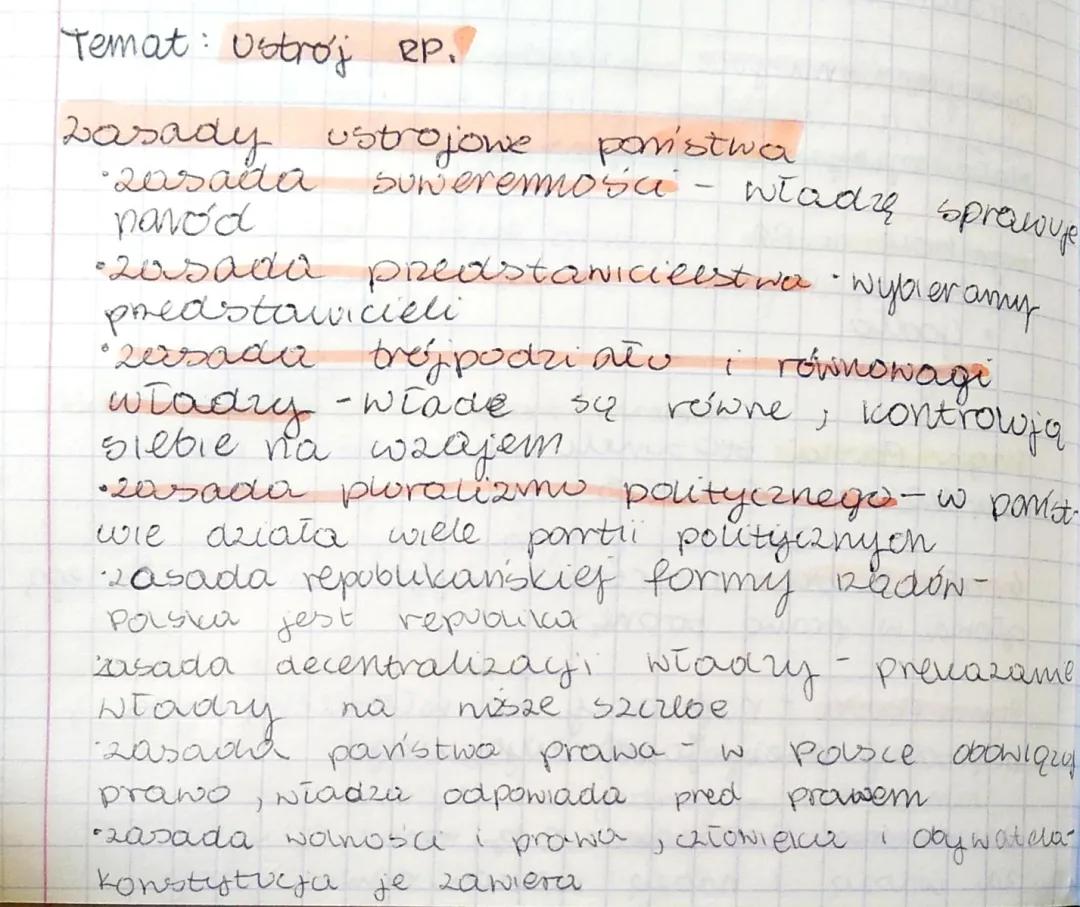 Temat: Ustrój RP.
Zasady ustrojowe państwa
• zasada suwerenności - władzę sprawuje
naród
• zasada przedstawicielstwa - wybieramy
przedstawicieli
• zasada trójpodziału i równowagi
władzy - władze są równe, kontrolują
siebie na wzajem
• zasada pluralizmu politycznego - w państ-
wie działa wiele partii politycznych
• zasada republikańskiej formy rządów -
Polska jest republiką
zasada decentralizacji władzy - przekazanie
władzy na niższe szczeble
• zasada państwa prawa - w Polsce obowiązuj
prawo, władza odpowiada pred prawem
• zasada wolności i prawa, człowieka i obywatela -
Konstytucja je zawiera